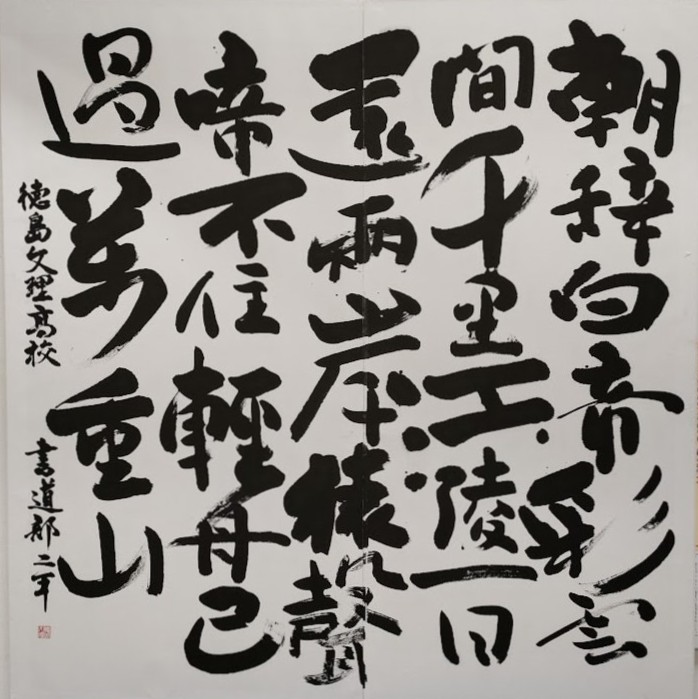 朝辞白帝彩雲
間千里江陵一日
還兩岸猿聲
啼不住輕舟已
過萬重山
徳島文理高校 書道部二年